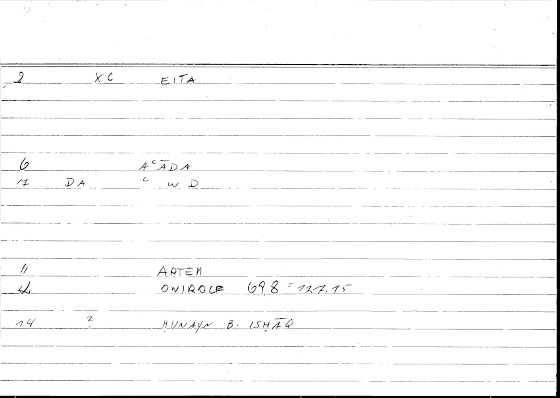 2 XC EITA
6 AᶜĀDA
7 DA ᶜWD
11 ARTEM
12 ONIROCR 69.8 = 127.15
14 ? ḤUNAYN B. ISḤĀQ